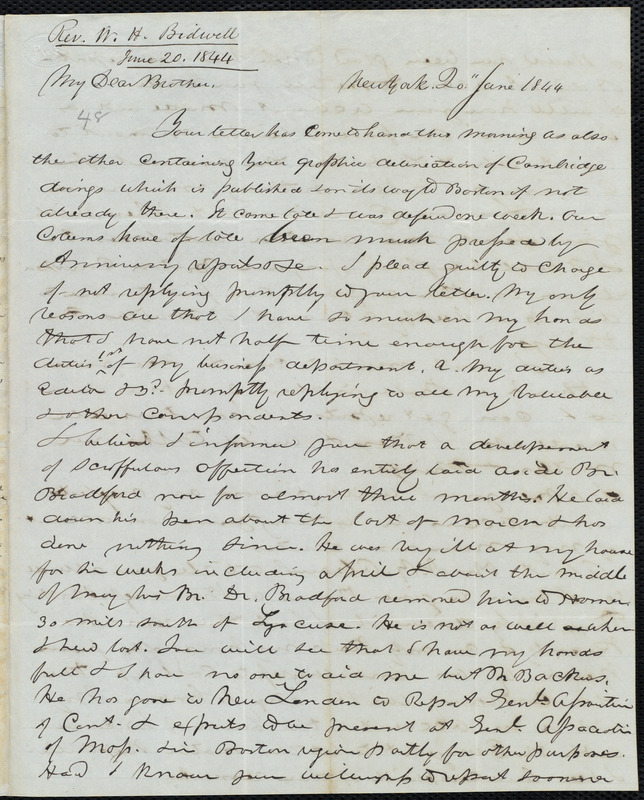 Rev. W. H. Bidwell
June 20. 1844
My Dear Brother, New York. 20th June 1844
48
Your letter has come to hand this morning as also
the other containing your graphic delineation of Cambridge
doings which is published & on its way to Boston if not
already there. It came late & was defered one week. Our
Colums have of late been much pressed by
Anniversary reports &c. I plead guilty to charge
of not replying promptly to your letter. My only
reasons are that I have so much on my hands
that I have not half time enough for the
duties 1st of my business department, 2. My duties as
Editor & 3d. Promptly replying to all my valuable
& other Correspondents.
I believe I informed you that a developement
of Scroffulous affection has entirely laid aside Br.
Bradford now for almost three months. He laid
down his pen about the last of March & has
done nothing since. He was very ill at my house
for six weeks including April & about the middle
of May his Br. Dr. Bradford removed him to Homer
30 miles south of Syracuse. He is not as well when
I heard last. You will see that I have my hands
full & I have no one to aid me but Mr Backus.
He has gone to New London to Report Genl. Association
of Cont. & expects to be present at Genl. Association
of Mass. in Boston region partly for other purposes.
Had I known your willingness to report sooner